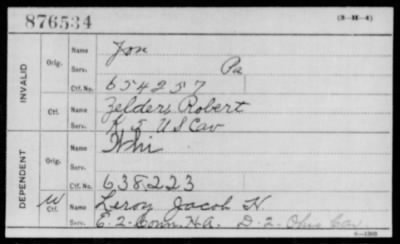 876534
(3-H-4)
INVALID
Orig.
Name
Serv. Pa
Ctf. No. 654257
Ctf.
Name Zelders Robert
Serv. K. 5 U S Cav
DEPENDENT
Orig.
Name
Serv.
Ctf. No. 638223
W
Ctf.
Name Leroy Jacob H.
Serv. E. 2. Conn. H.A. D. 2. Ohio Cav